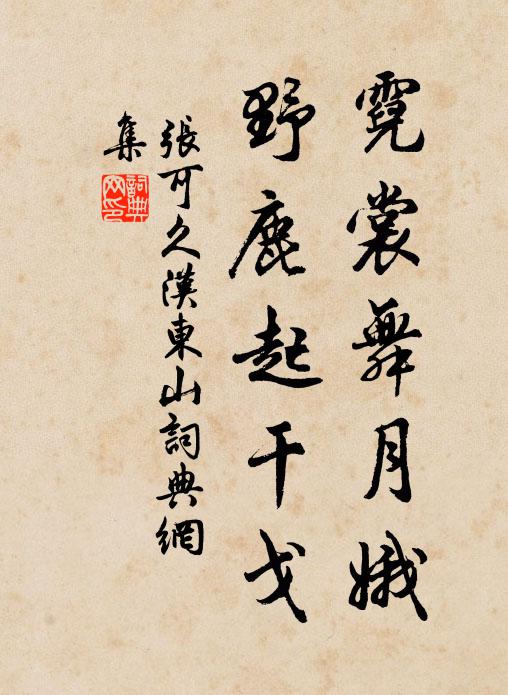 霓裳舞月娥
野鹿起干戈
張可久漢東山詞典網
集
詞典網印